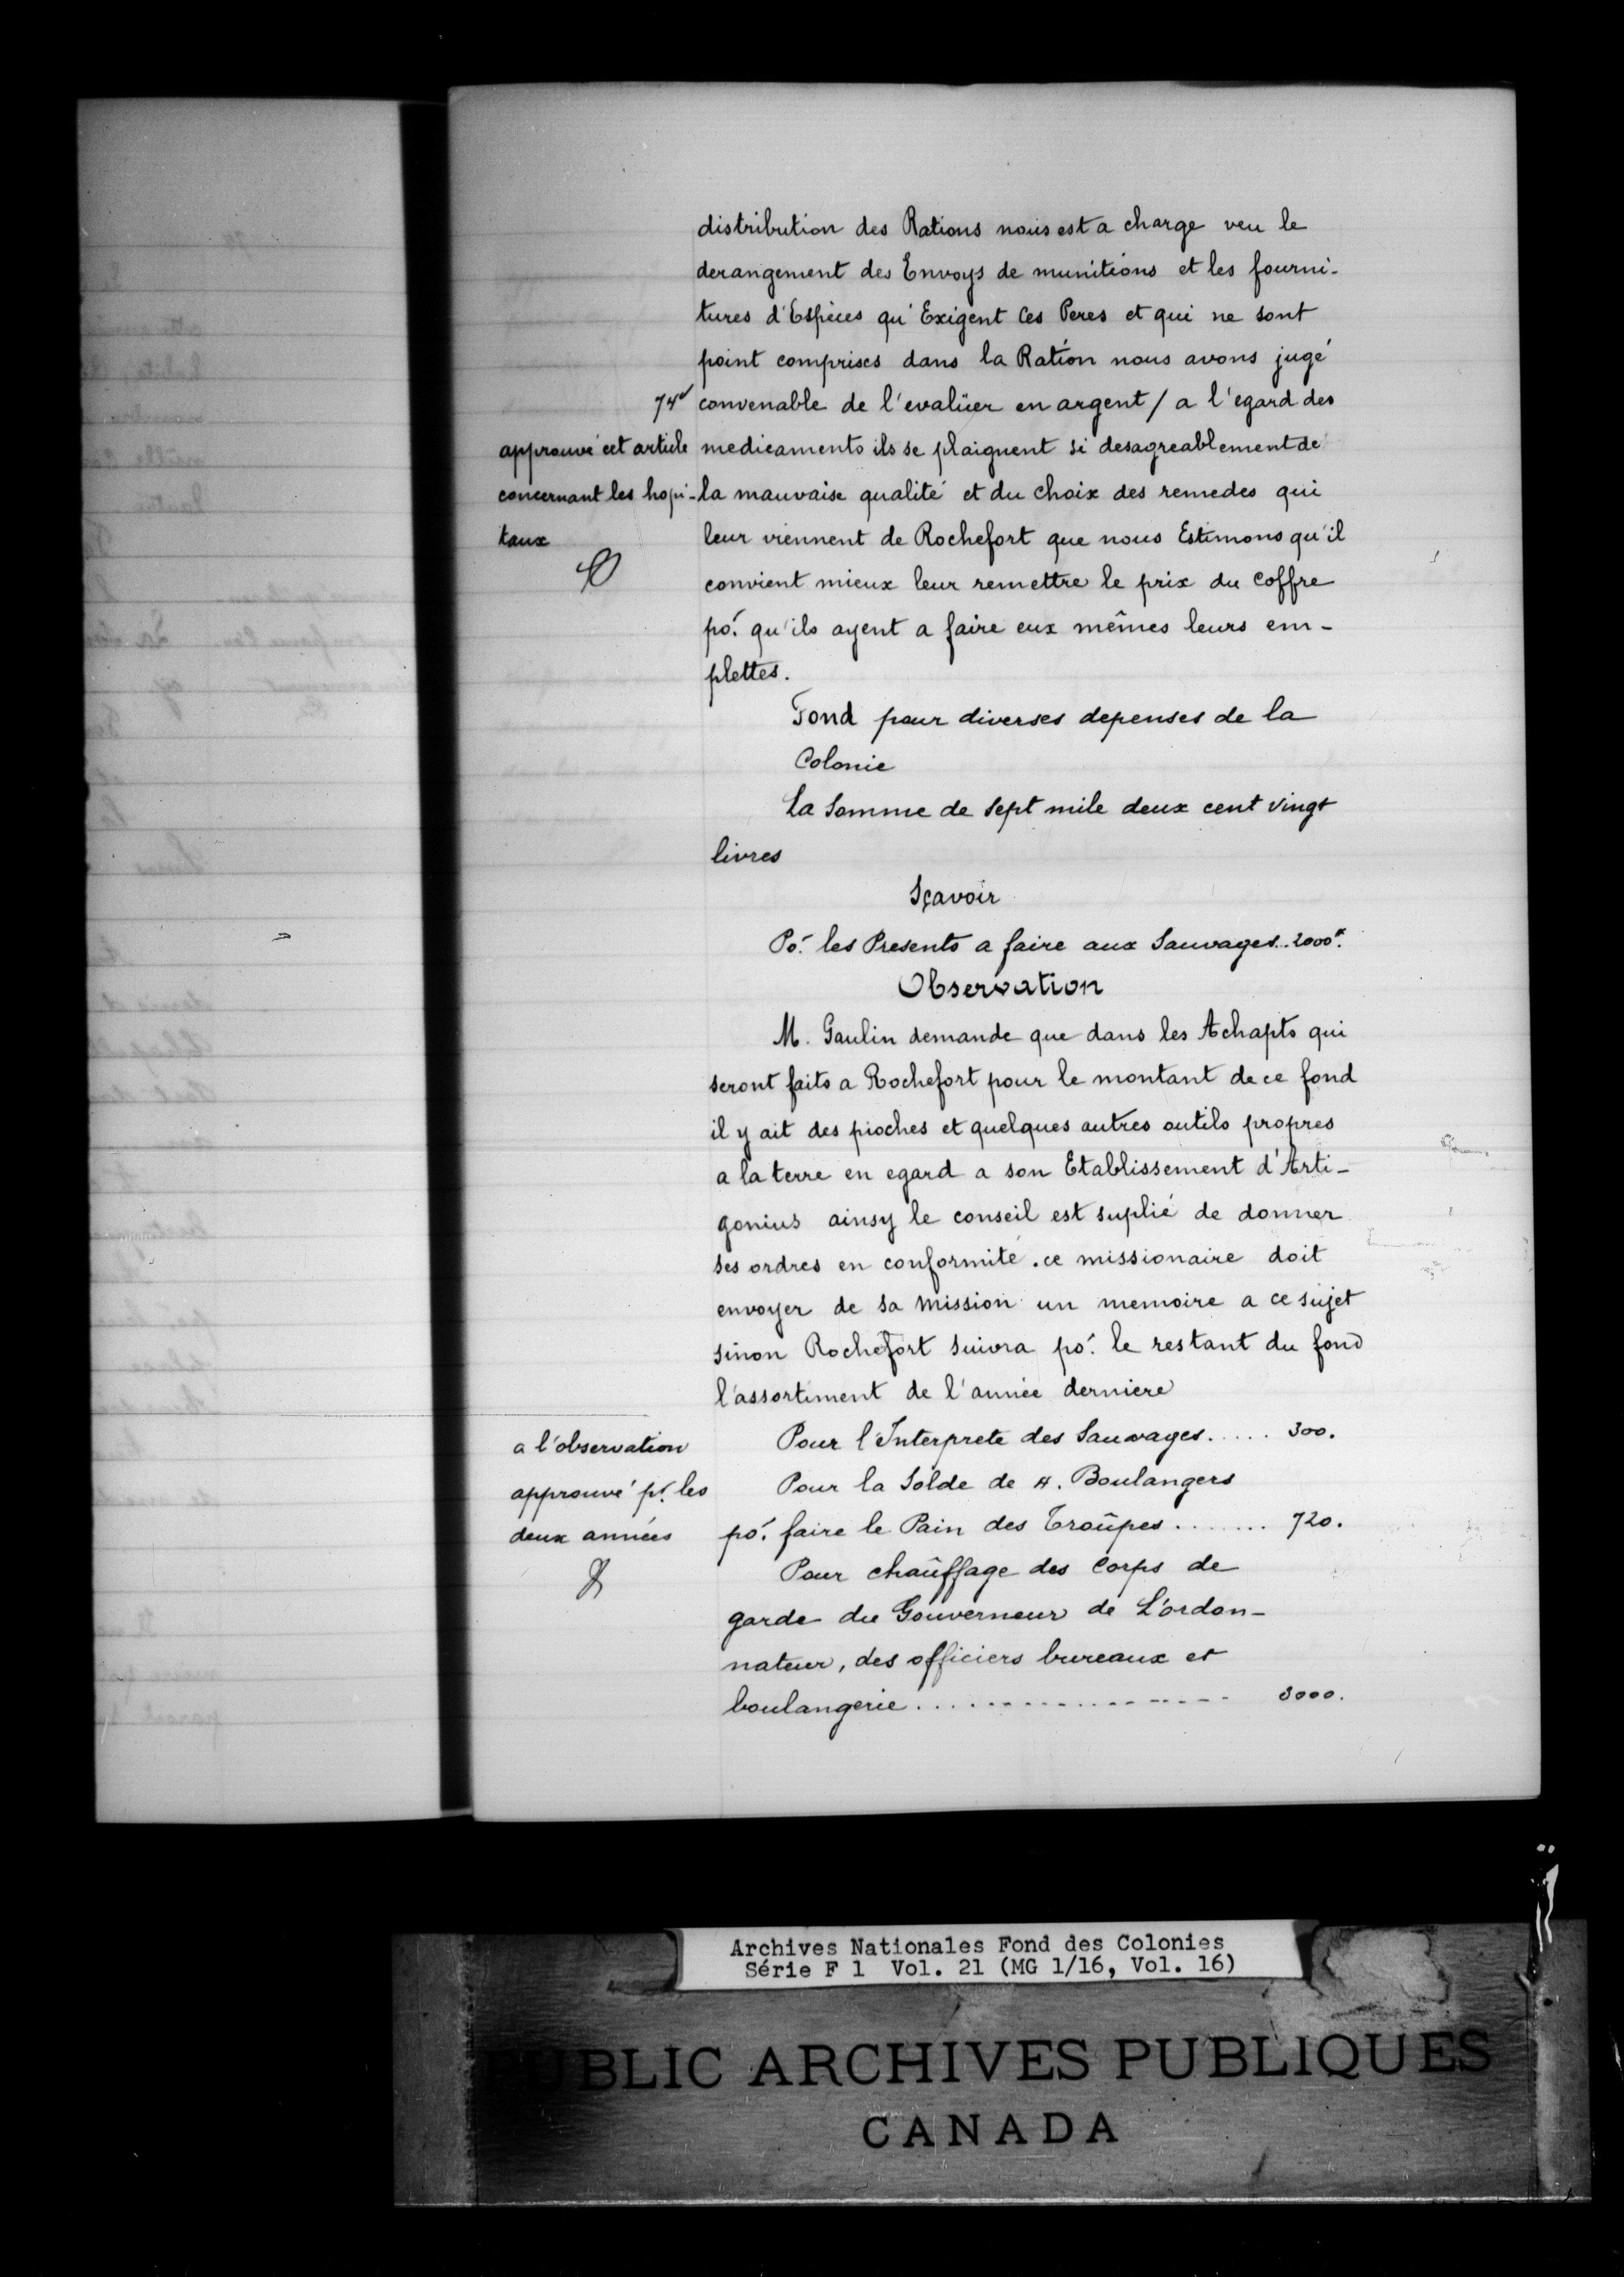 distribution des Rations nous est a charge veu le
derangement des Envoys de munitions et les fourni-
tures d'Espèces qu'Exigent Ces Peres et qui ne sont
point comprises dans la Ration nous avons jugé
74v
convenable de l'evalüer en argent / a l'egard des
approuvé cet article
concernant les hopi-
taux
medicaments ils se plaignent si desagreablement de
la mauvaise qualité et du choix des remedes qui
leur viennent de Rochefort que nous Estimons qu'il
convient mieux leur remettre le prix du coffre
po.r qu'ils ayent a faire eux mêmes leurs em-
plettes.
Fond pour diverses depenses de la
Colonie
La Somme de Sept mile deux cent vingt
livres
Sçavoir
Po.r les Presents a faire aux Sauvages..2000.
Observation
M. Gaulin demande que dans les Achapts qui
seront faits a Rochefort pour le montant de ce fond
il y ait des pioches et quelques autres outils propres
a la terre en egard a son Etablissement d'Arti-
gonius ainsy le conseil est suplié de donner
ses ordres en conformité. ce missionaire doit
envoyer de sa mission un memoire a ce sujet
sinon Rochefort suivra po.r le restant du fond
l'assortiment de l'année derniere
a l'observation
approuvé p.r les
deux années
Pour l'Interprete des Sauvages..... 300.
Pour la Solde de 4. Boulangers
po.r faire le Pain des Troûpes....... 720.
Pour chaûffage des Corps de
garde du Gouverneur de L'ordon-
nateur, des officiers bureaux et
boulangerie.................. 3000.
Archives Nationales Fond des Colonies
Série F 1 Vol. 21 (MG 1/16, Vol. 16)
PUBLIC ARCHIVES PUBLIQUES
CANADA